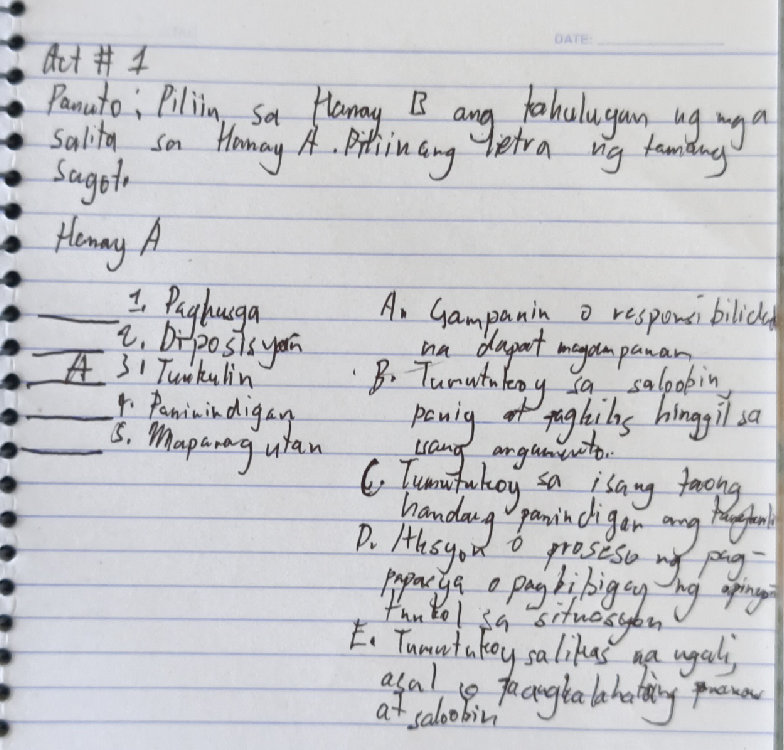 DATE:
Act # 1
Panuto: Piliin sa Hanay B ang kahulugan ng mga
salita sa Hanay A. Piliin ang letra ng tamang
sagot.
Hanay A
1. Paghusga
2. Diposisyon
A 3. Tungkulin
4. Paninindigan
5. Mapanagutan
A. Gampanin o responsibilidad
na dapat magampanan
B. Tumutukoy sa saloobin,
panig at pagkilos hinggil sa
isang argumento.
C. Tumutukoy sa isang taong
handang panindigan ang
D. Aksyon o proseso ng pag-
papasya o pagbibigay ng opinyon
tunkol sa sitwasyon
E. Tumutukoy sa likas na ugali,
asal o pangkalahatang pananaw
at saloobin